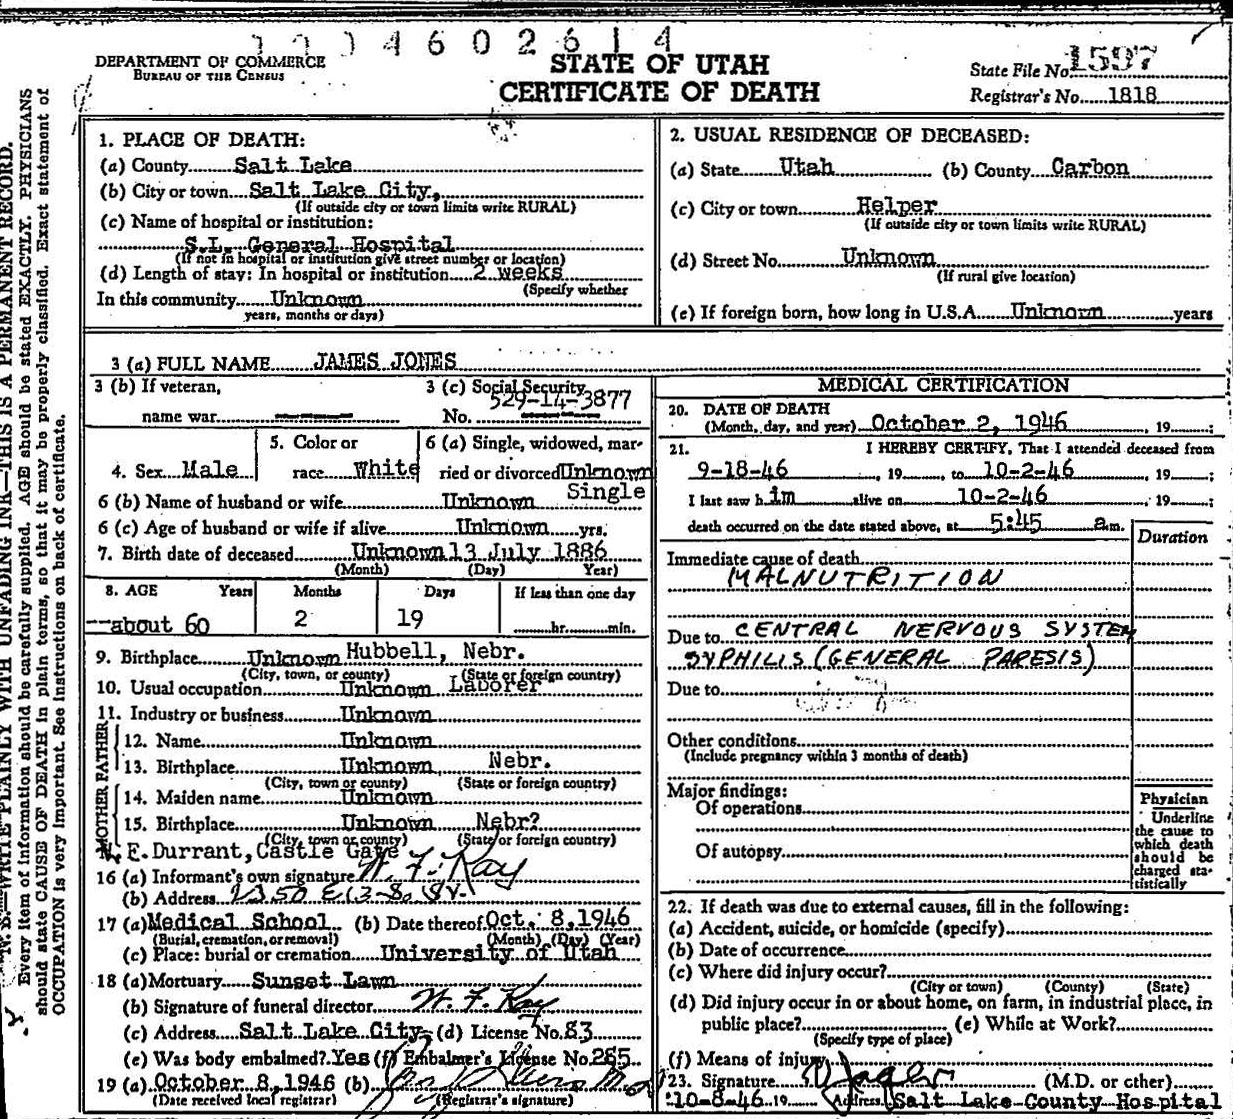 4 6 0 2 6 1 4
DEPARTMENT OF COMMERCE
BUREAU OF THE CENSUS
STATE OF UTAH
CERTIFICATE OF DEATH
State File No. 1597
Registrar's No. 1818
N. B.—WRITE PLAINLY WITH UNFADING INK—THIS IS A PERMANENT RECORD.
Every item of information should be carefully supplied. AGE should be stated EXACTLY. PHYSICIANS
should state CAUSE OF DEATH in plain terms, so that it may be properly classified. Exact statement of
OCCUPATION is very important. See instructions on back of certificate.
1. PLACE OF DEATH:
(a) County Salt Lake
(b) City or town Salt Lake City,
(If outside city or town limits write RURAL)
(c) Name of hospital or institution:
S.L. General Hospital
(If not in hospital or institution give street number or location)
(d) Length of stay: In hospital or institution 2 weeks
(Specify whether
In this community Unknown
years, months or days)
2. USUAL RESIDENCE OF DECEASED:
(a) State Utah (b) County Carbon
(c) City or town Helper
(If outside city or town limits write RURAL)
(d) Street No. Unknown
(If rural give location)
(e) If foreign born, how long in U.S.A. Unknown years
3 (a) FULL NAME JAMES JONES
3 (b) If veteran,
name war
3 (c) Social Security
No. 529-14-3877
4. Sex Male
5. Color or
race White
6 (a) Single, widowed, mar-
ried or divorced Unknown
Single
6 (b) Name of husband or wife Unknown
6 (c) Age of husband or wife if alive Unknown yrs.
7. Birth date of deceased Unknown 13 July 1886
(Month) (Day) Year)
8. AGE Years Months Days If less than one day
about 60 2 19 hr. min.
9. Birthplace Unknown Hubbell, Nebr.
(City, town, or county) (State or foreign country)
10. Usual occupation Unknown Laborer
11. Industry or business Unknown
FATHER
12. Name Unknown
13. Birthplace Unknown Nebr.
(City, town or county) (State or foreign country)
MOTHER
14. Maiden name Unknown
15. Birthplace Unknown Nebr?
(City, town or county) (State or foreign country)
E. Durrant, Castle Gate
16 (a) Informant's own signature W. F. Kay
(b) Address 2350 E 13-So. St.
17 (a) Medical School (b) Date thereof Oct. 8, 1946
(Burial, cremation, or removal) (Month) (Day) (Year)
(c) Place: burial or cremation University of Utah
18 (a) Mortuary Sunset Lawn
(b) Signature of funeral director W. F. Kay
(c) Address Salt Lake City, (d) License No. 83
(e) Was body embalmed? Yes (f) Embalmer's License No. 285
19 (a) October 8, 1946 (b)
(Date received local registrar) (Registrar's signature)
MEDICAL CERTIFICATION
20. DATE OF DEATH
(Month, day, and year) October 2, 1946, 19 ;
21. I HEREBY CERTIFY, That I attended deceased from
9-18-46, 19 , to 10-2-46, 19 ;
I last saw h im alive on 10-2-46, 19 ;
death occurred on the date stated above, at 5:45 a m.
Duration
Immediate cause of death
MALNUTRITION
Due to CENTRAL NERVOUS SYSTEM
SYPHILIS (GENERAL PARESIS)
Due to
Other conditions
(Include pregnancy within 3 months of death)
Major findings:
Of operations
Of autopsy
Physician
Underline
the cause to
which death
should be
charged sta-
tistically
22. If death was due to external causes, fill in the following:
(a) Accident, suicide, or homicide (specify)
(b) Date of occurrence
(c) Where did injury occur?
(City or town) (County) (State)
(d) Did injury occur in or about home, on farm, in industrial place, in
public place? (e) While at Work?
(Specify type of place)
(f) Means of injury
23. Signature (M.D. or other)
10-8-46 19 Address Salt Lake County Hospital